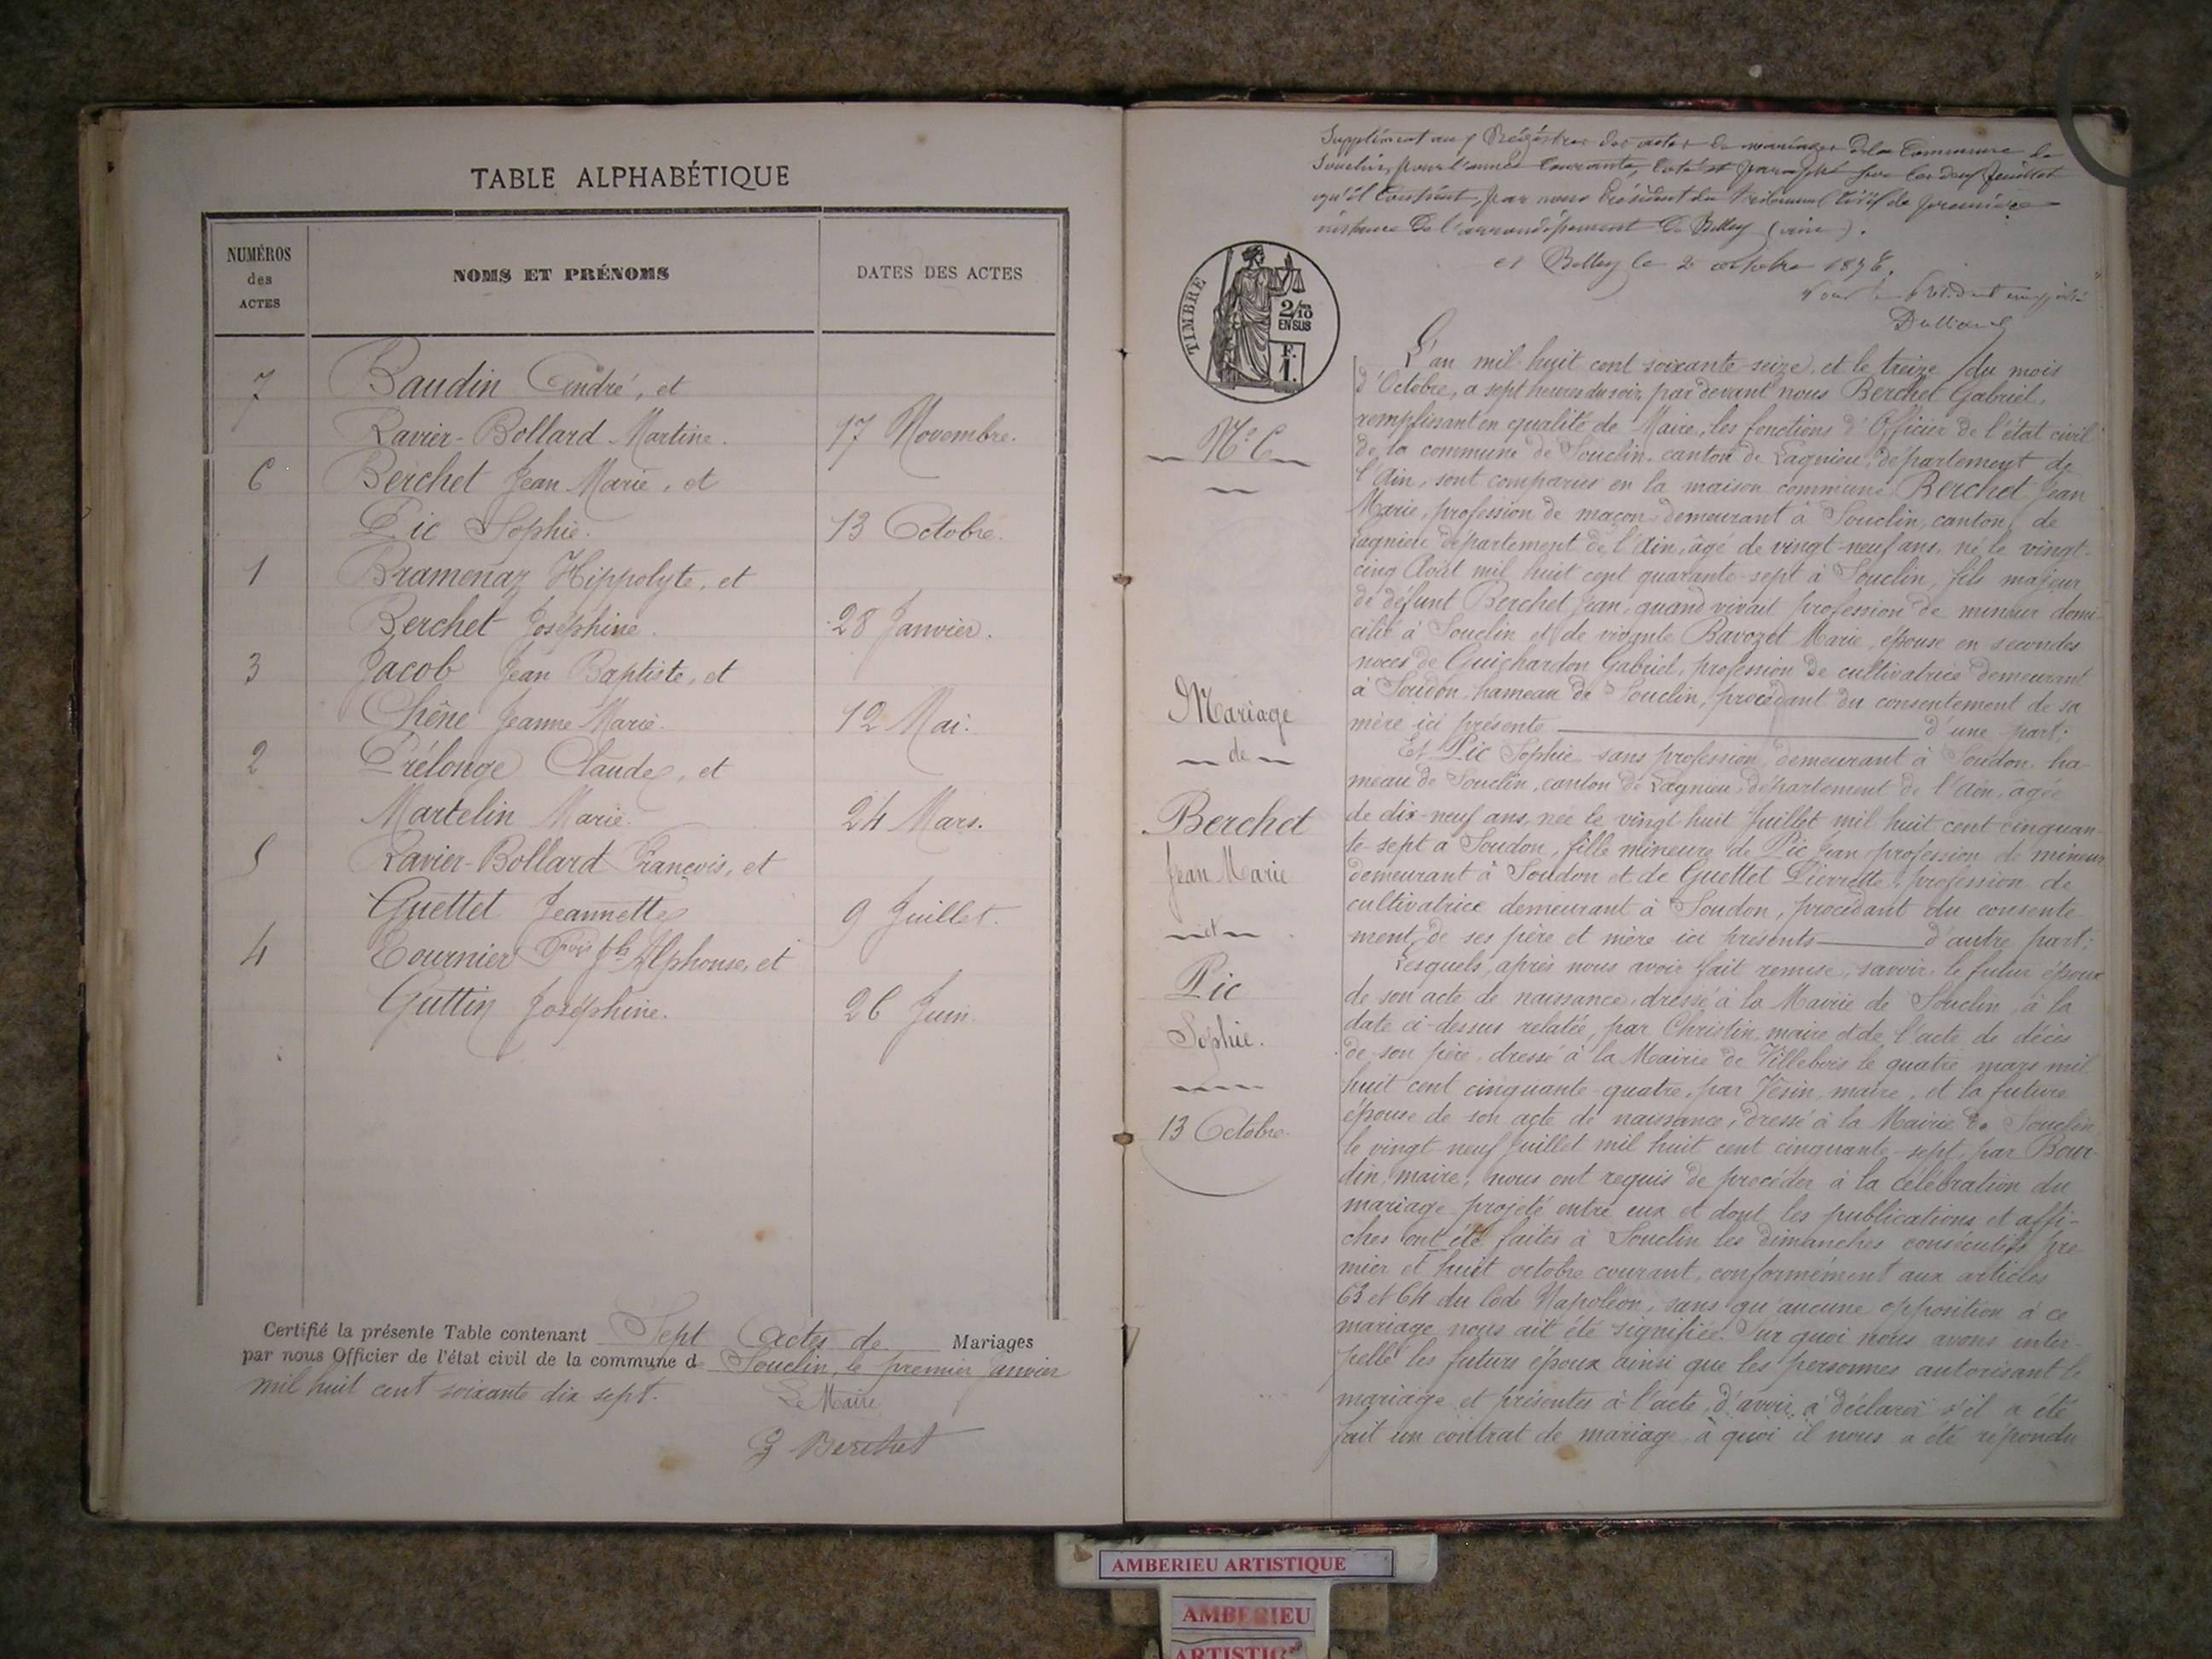 TABLE ALPHABÉTIQUE
NUMÉROS
des
ACTES
NOMS ET PRÉNOMS
DATES DES ACTES
7 Baudin André, et
Ravier-Bollard Martine. 17 Novembre.
6 Berchet Jean Marie, et
Pic Sophie. 13 Octobre.
1 Bramenaz Hippolyte, et
Berchet Joséphine. 28 Janvier.
3 Jacob Jean Baptiste, et
Chêne Jeanne Marie. 12 Mai.
2 Prélonge Claude, et
Martelin Marie. 24 Mars.
5 Ravier-Bollard François, et
Guettet Jeannette 9 Juillet.
4 Tournier Alphonse, et
Guttin Joséphine. 26 Juin.
Certifié la présente Table contenant Sept Actes de Mariages
par nous Officier de l'état civil de la commune d Souclin, le premier Janvier
mil huit cent soixante dix sept.
Le Maire
G Berchet
Supplément aux Régistres des actes de mariages de la Commune de
Souclin, pour l'année Courante, Coté et paraphé par les deux feuillets
qu'il Contient, par nous Président du Tribunal Civil de première
instance de l'arrondissement de Belley (ain).
Belley le 2 octobre 1876.
TIMBRE
2/10
EN SUS
F.
1.
N° 6
Mariage
de
Berchet
Jean Marie
et
Pic
Sophie.
13 Octobre.
L'an mil huit cent soixante-seize, et le treize du mois
d'Octobre, a sept heures du soir, par devant nous Berchet Gabriel,
remplissant en qualité de Maire, les fonctions d'Officier de l'état civil
de la commune de Souclin, canton de Lagnieu, département de
l'Ain, sont comparus en la maison commune Berchet Jean
Marie, profession de maçon demeurant à Souclin, canton de
Lagnieu département de l'Ain, âgé de vingt-neuf ans, né le vingt-
cinq Août mil huit cent quarante-sept à Souclin, fils majeur
de défunt Berchet Jean, quand vivait profession de mineur domi-
cilié à Souclin et de vivante Ravozet Marie, épouse en secondes
noces de Guichardon Gabriel, profession de cultivatrice demeurant
à Soudon, hameau de Souclin, procédant du consentement de sa
mère ici présente d'une part;
Et Pic Sophie sans profession, demeurant à Soudon, ha-
meau de Souclin, canton de Lagnieu, département de l'Ain, âgée
de dix-neuf ans, née le vingt-huit Juillet mil huit cent cinquan-
te-sept à Soudon, fille mineure de Pic Jean profession de mineur
demeurant à Soudon et de Guettet Pierrette, profession de
cultivatrice demeurant à Soudon, procédant du consente-
ment de ses père et mère ici présents d'autre part;
Lesquels, après nous avoir fait remise, savoir: le futur époux
de son acte de naissance, dressé à la Mairie de Souclin, à la
date ci-dessus relatée, par Christin, maire et de l'acte de décès
de son père, dressé à la Mairie de Villebois le quatre mars mil
huit cent cinquante-quatre, par Vésin, maire, et la future
épouse de son acte de naissance, dressé à la Mairie de Souclin
le vingt-neuf Juillet mil huit cent cinquante-sept, par Bour-
din, maire; nous ont requis de procéder à la célébration du
mariage projeté entre eux et dont les publications et affi-
ches ont été faites à Souclin les dimanches consécutifs pre-
mier et huit octobre courant, conformément aux articles
63 et 64 du Code Napoléon, sans qu'aucune opposition à ce
mariage nous ait été signifiée. Sur quoi nous avons inter-
pellé les futurs époux ainsi que les personnes autorisant le
mariage et présentes à l'acte, d'avoir à déclarer s'il a été
fait un contrat de mariage, à quoi il nous a été répondu
AMBERIEU ARTISTIQUE
AMBERIEU
ARTISTIQ